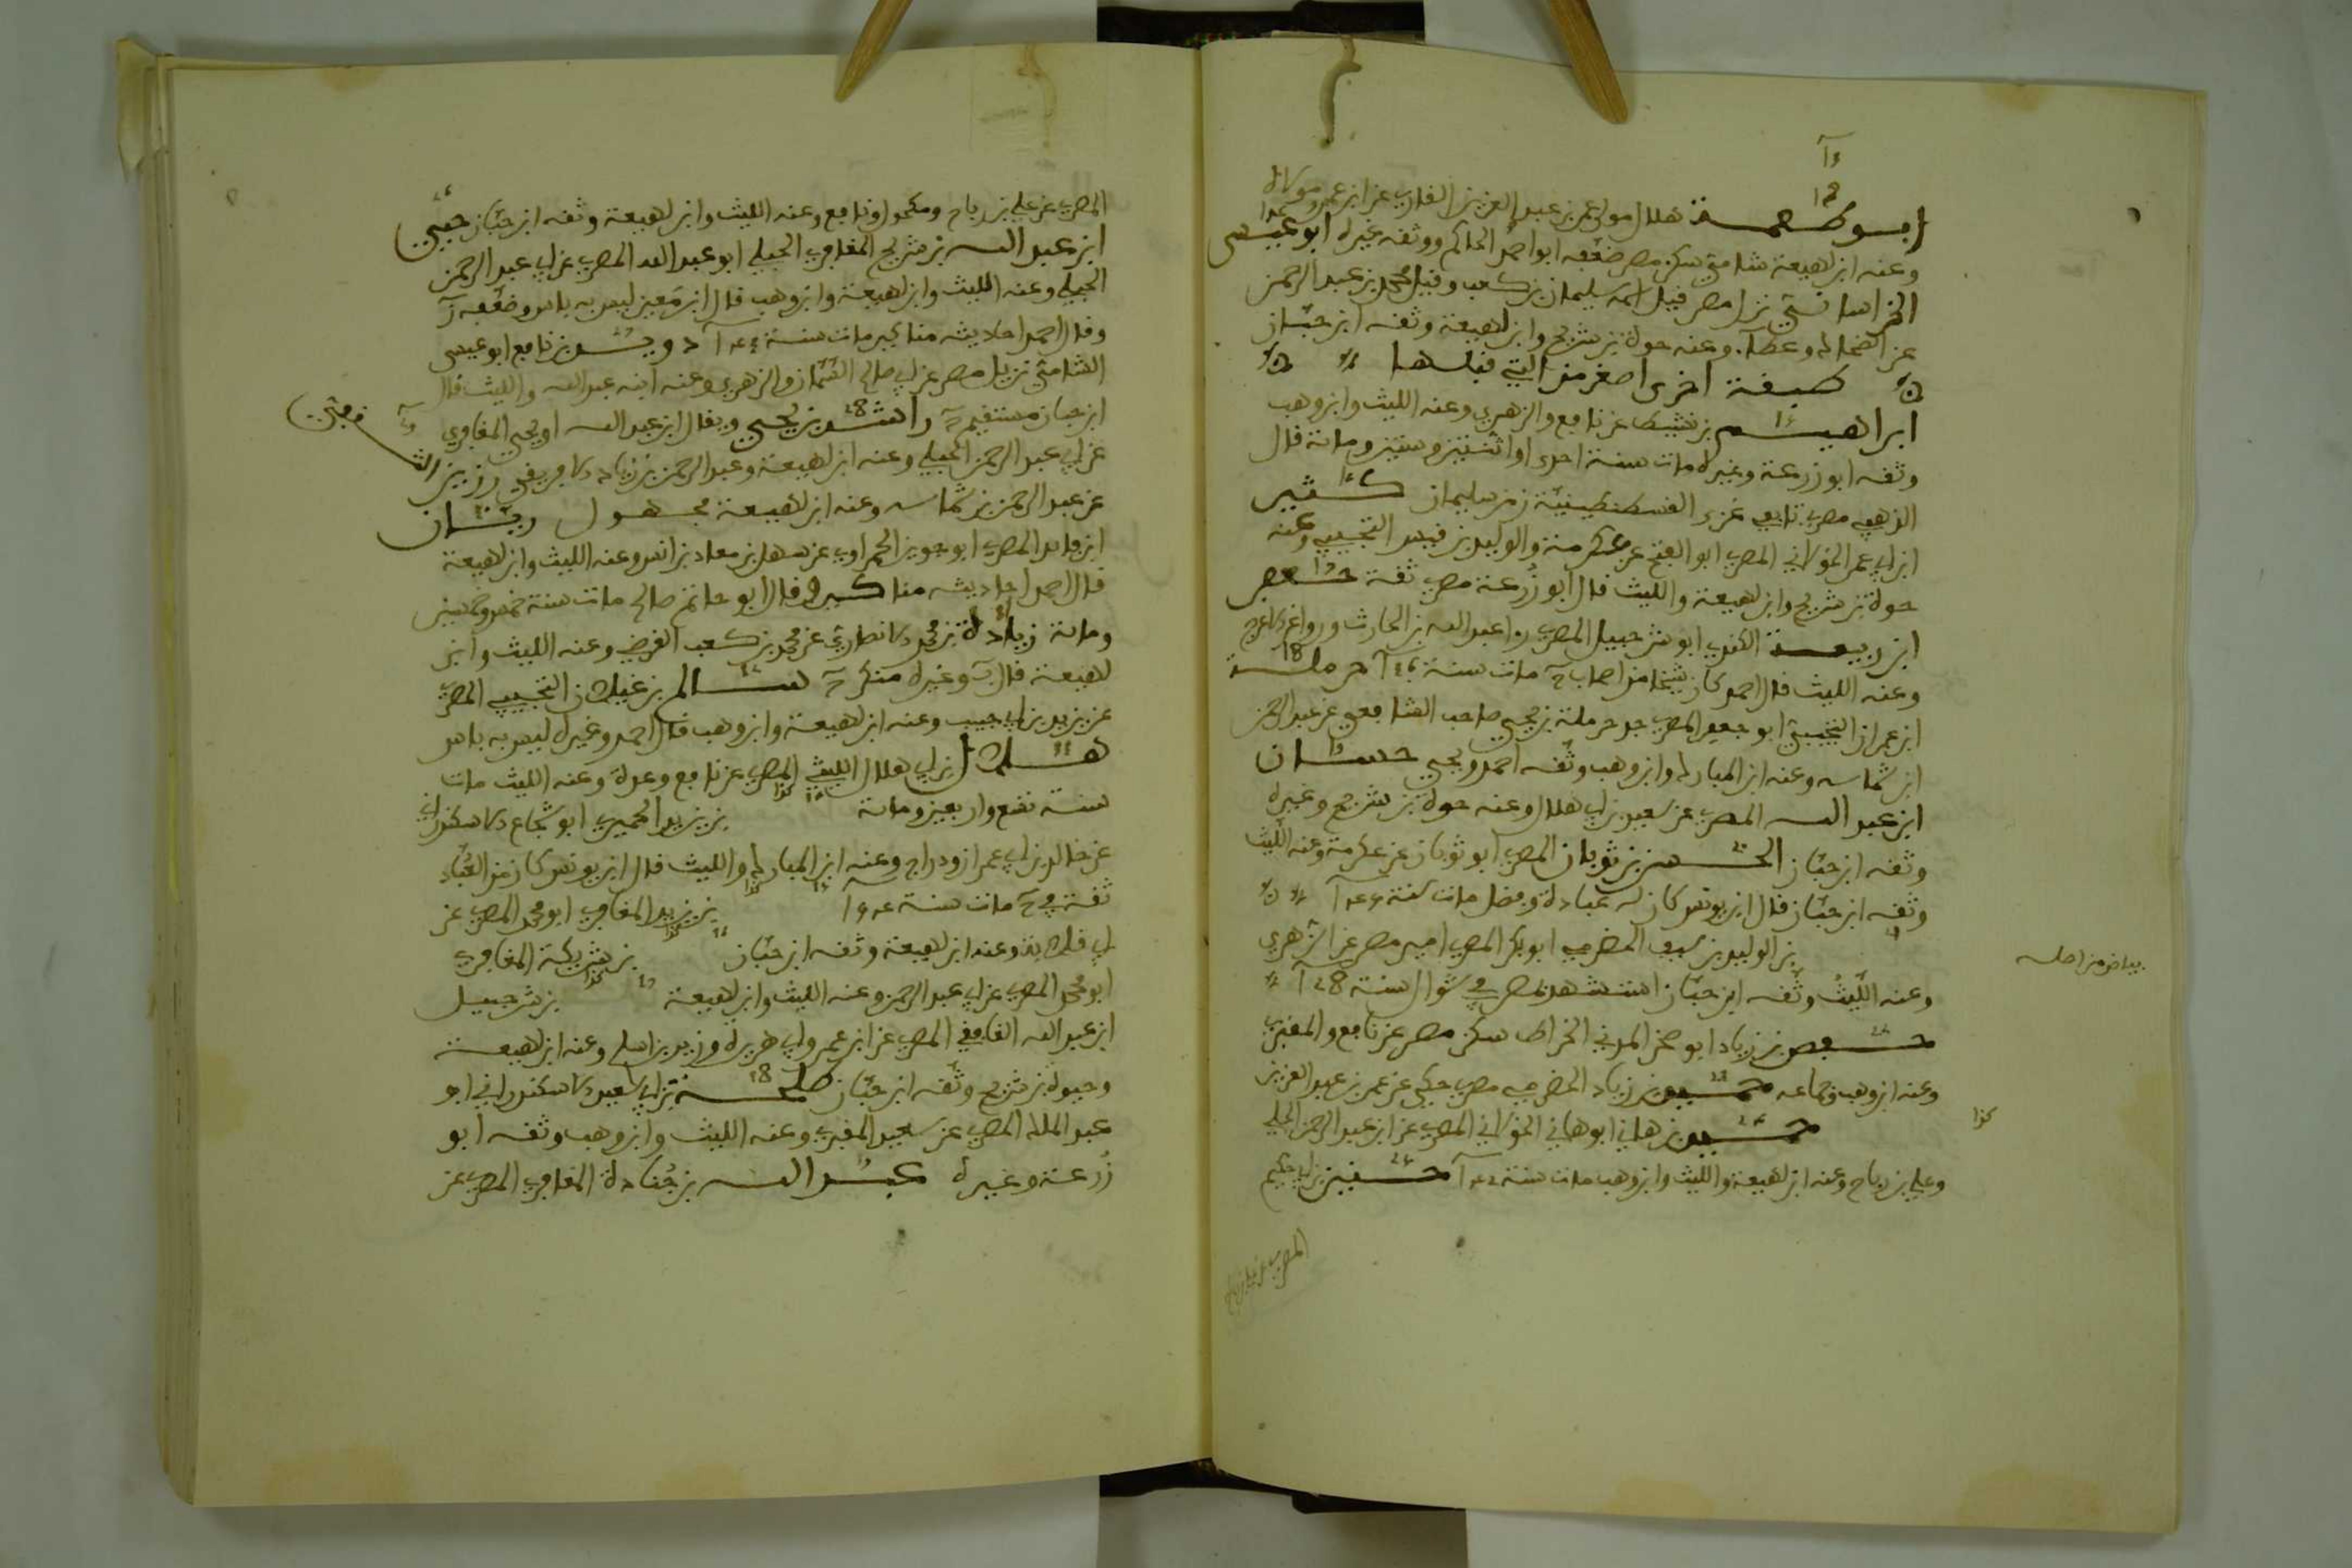 ابو طعمة هلال مولى عمر بن عبد العزيز القارئ عن ابن عمر ومولاه
وعنه ابن لهيعة شامي سكن مصر ضعفه ابو احمد الحاكم ووثقه غيره ابو عيسى
الخراساني نزل مصر قيل اسمه سليمان بن كعب وقيل محمد بن عبد الرحمن
عن الضحاك وعطاء وعنه حيوة بن شريح وابن لهيعة وثقه ابن حبان
طبقة اخرى اصغر من التي قبلها
ابراهيم بن نشيط عن نافع والزهري وعنه الليث وابن وهب
وثقه ابو زرعة وغيره مات سنة احدى او اثنتين وستين ومائة قال
الذهبي مصري تابعي غزى القسطنطينية زمن سليمان كثير
ابن ابي عمر الخولاني المصري ابو الفتح عن عكرمة والوليد بن قيس التجيبي وعنه
حيوة بن شريح وابن لهيعة والليث قال ابو زرعة مصري ثقة جعفر
ابن ربيعة الكندي ابو شرحبيل المصري را عبد الله بن الحارث وروا عن الاعرج
وعنه الليث قال احمد كان شيخا من اصحاب مات سنة حرملة
ابن عمران التجيبي ابو جعفر المصري جد حرملة بن يحيى صاحب الشافعي عن عبد الرحمن
ابن شماسه وعنه ابن المبارك وابن وهب وثقه احمد ويحيى حسان
ابن عبد الله المصري عن سعيد بن ابي هلال وعنه حيوة بن شريح وغيره
وثقه ابن حبان الحسن بن ثوبان المصري ابو ثوبان عن عكرمة وعنه الليث
وثقه ابن حبان قال ابن يونس كان له عبادة وفضل مات سنة
بن الوليد بن سيف الحضرمي ابو بكر المصري امير مصر عن الزهري
بياض من اصله
وعنه الليث وثقه ابن حبان استشهد بمصر في شوال سنة
حفص بن زياد ابو صخر المدني الخراط سكن مصر عن نافع والمقبري
وعنه ابن وهب وجماعه حميد بن زياد الحضرمي مصري حكى عن عمر بن عبد العزيز
كذا
حميد بن هاني ابو هاني الخولاني المصري عن ابن عبد الرحمن الحبلي
وعلي بن رباح وعنه ابن لهيعة والليث وابن وهب مات سنة حنين بن ابي حكيم
المصري عن علي بن رباح
المصري عن علي بن رباح ومكحول ونافع وعنه الليث وابن لهيعة وثقه ابن حبان حيي
ابن عبد الله بن شريح المعافري الحبلي ابو عبد الله المصري عن ابي عبد الرحمن
الحبلي وعنه الليث وابن لهيعة وابن وهب قال ابن معين ليس به باس وضعفه
وقال احمد احاديثه مناكير مات سنة دويد بن نافع ابو عيسى
الشامي نزيل مصر عن ابي صالح السمان والزهري وعنه ابنه عبد الله والليث قال
ابن حبان مستقيم راشد بن يحيى ويقال ابن عبد الله او يحيى المعافري
عن ابي عبد الرحمن الحبلي وعنه ابن لهيعة وعبد الرحمن بن زياد الافريقي رزين الثقفي
عن عبد الرحمن بن شماسه وعنه ابن لهيعة مجهول زبان
ابن فايد المصري ابو جوين الحمراوي عن سهل بن معاد بن انس وعنه الليث وابن لهيعة
قال احمد احاديثه مناكير وقال ابو حاتم صالح مات سنة خمس وخمسين
ومائة زيادة بن محمد الانصاري عن محمد بن كعب القرضي وعنه الليث وابن
لهيعة قال وغيره منكر سالم بن غيلان التجيبي المصري
عن يزيد بن ابي حبيب وعنه ابن لهيعة وابن وهب قال احمد وغيره ليس به باس
هلال ابن ابي هلال الليثي المصري عن نافع وعدة وعنه الليث مات
سنة تسع واربعين ومائة كذا بن يزيد الحميري ابو شجاع الاسكندراني
عن خالد بن ابي عمران ودراج وعنه ابن المبارك والليث قال ابن يونس كان من العباد
ثقة في مات سنة كذا بن يزيد المعافري ابو محمد المصري عن
ابي قلابة وعنه ابن لهيعة وثقه ابن حبان كذا بن شريكة المعافري
ابو محمد المصري عن ابي عبد الرحمن وعنه الليث وابن لهيعة كذا بن شرحبيل
ابن عبد الله الغافقي المصري عن ابن عمر وابي هريرة وزيد بن اسلم وعنه ابن لهيعة
وحيوة بن شريح وثقه ابن حبان طلحة بن ابي سعيد الاسكندراني ابو
عبد الملك المصري عن سعيد المقبري وعنه الليث وابن وهب وثقه ابو
زرعة وغيره عبد الله بن جنادة المعافري المصري عن